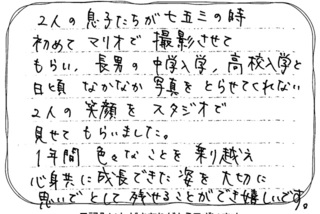 2人の息子たちが七五三の時
初めてマリオで撮影させて
もらい、長男の中学入学、高校入学と
日頃なかなか写真をとらせてくれない
2人の笑顔をスタジオで
見せてもらいました。
1年間色々なことを乗り越え
心身共に成長できた姿を大切に
思いでとして残せることができ嬉しいです。